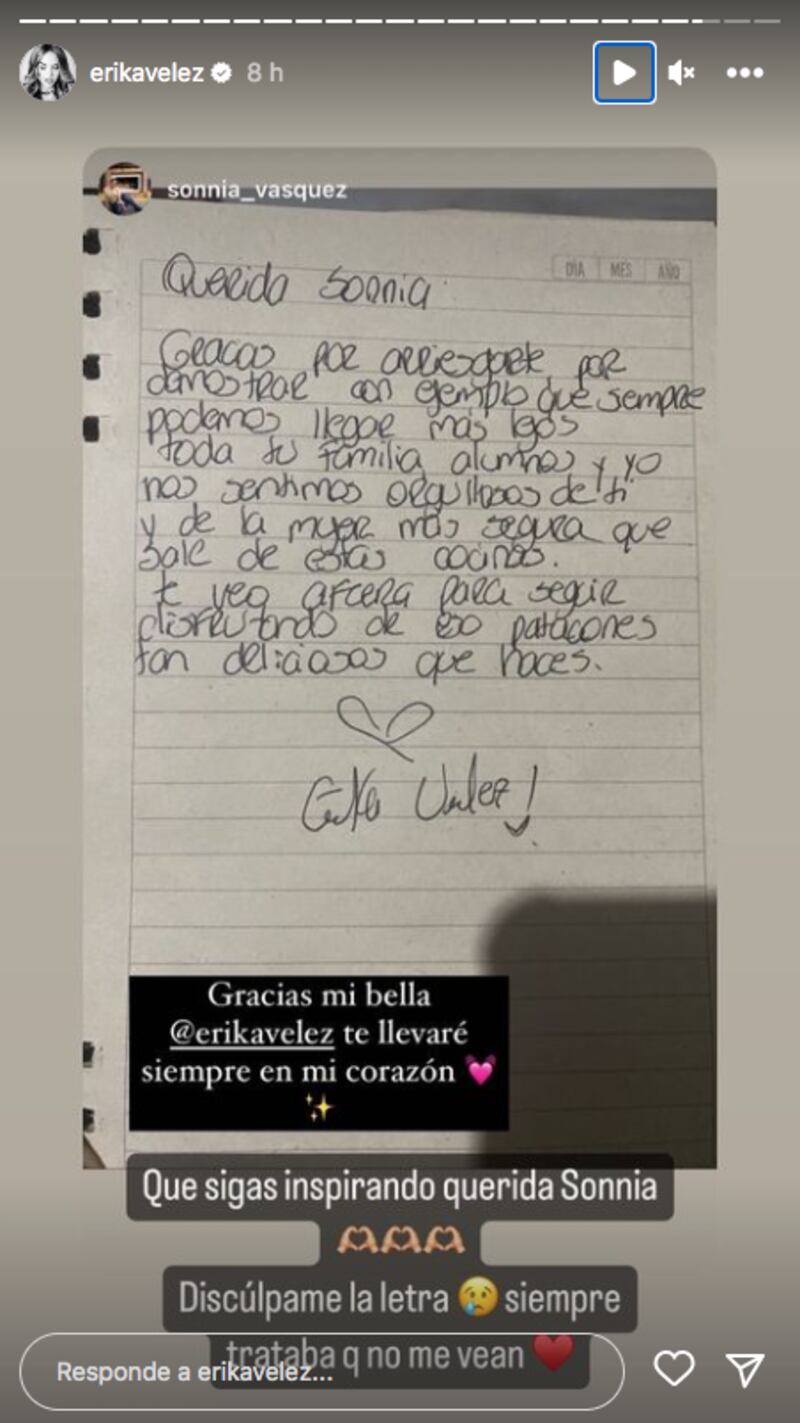 erikavelez 8 h
sonnia_vasquez
DÍA MES AÑO
Querida Sonnia
Gracias por arriesgarte, por
demostrar con ejemplo que siempre
podemos llegar más lejos
toda tu familia, alumnos y yo
nos sentimos orgullosos de ti
y de la mujer más segura que
sale de estas cocinas.
te veo afuera para seguir
disfrutando de eso patacones
tan deliciosos que haces.
Erika Velez!
Gracias mi bella
@erikavelez te llevaré
siempre en mi corazón 💓
✨
Que sigas inspirando querida Sonnia
🫶🏼🫶🏼🫶🏼
Discúlpame la letra 😢 siempre
trataba q no me vean ♥️
Responde a erikavelez...